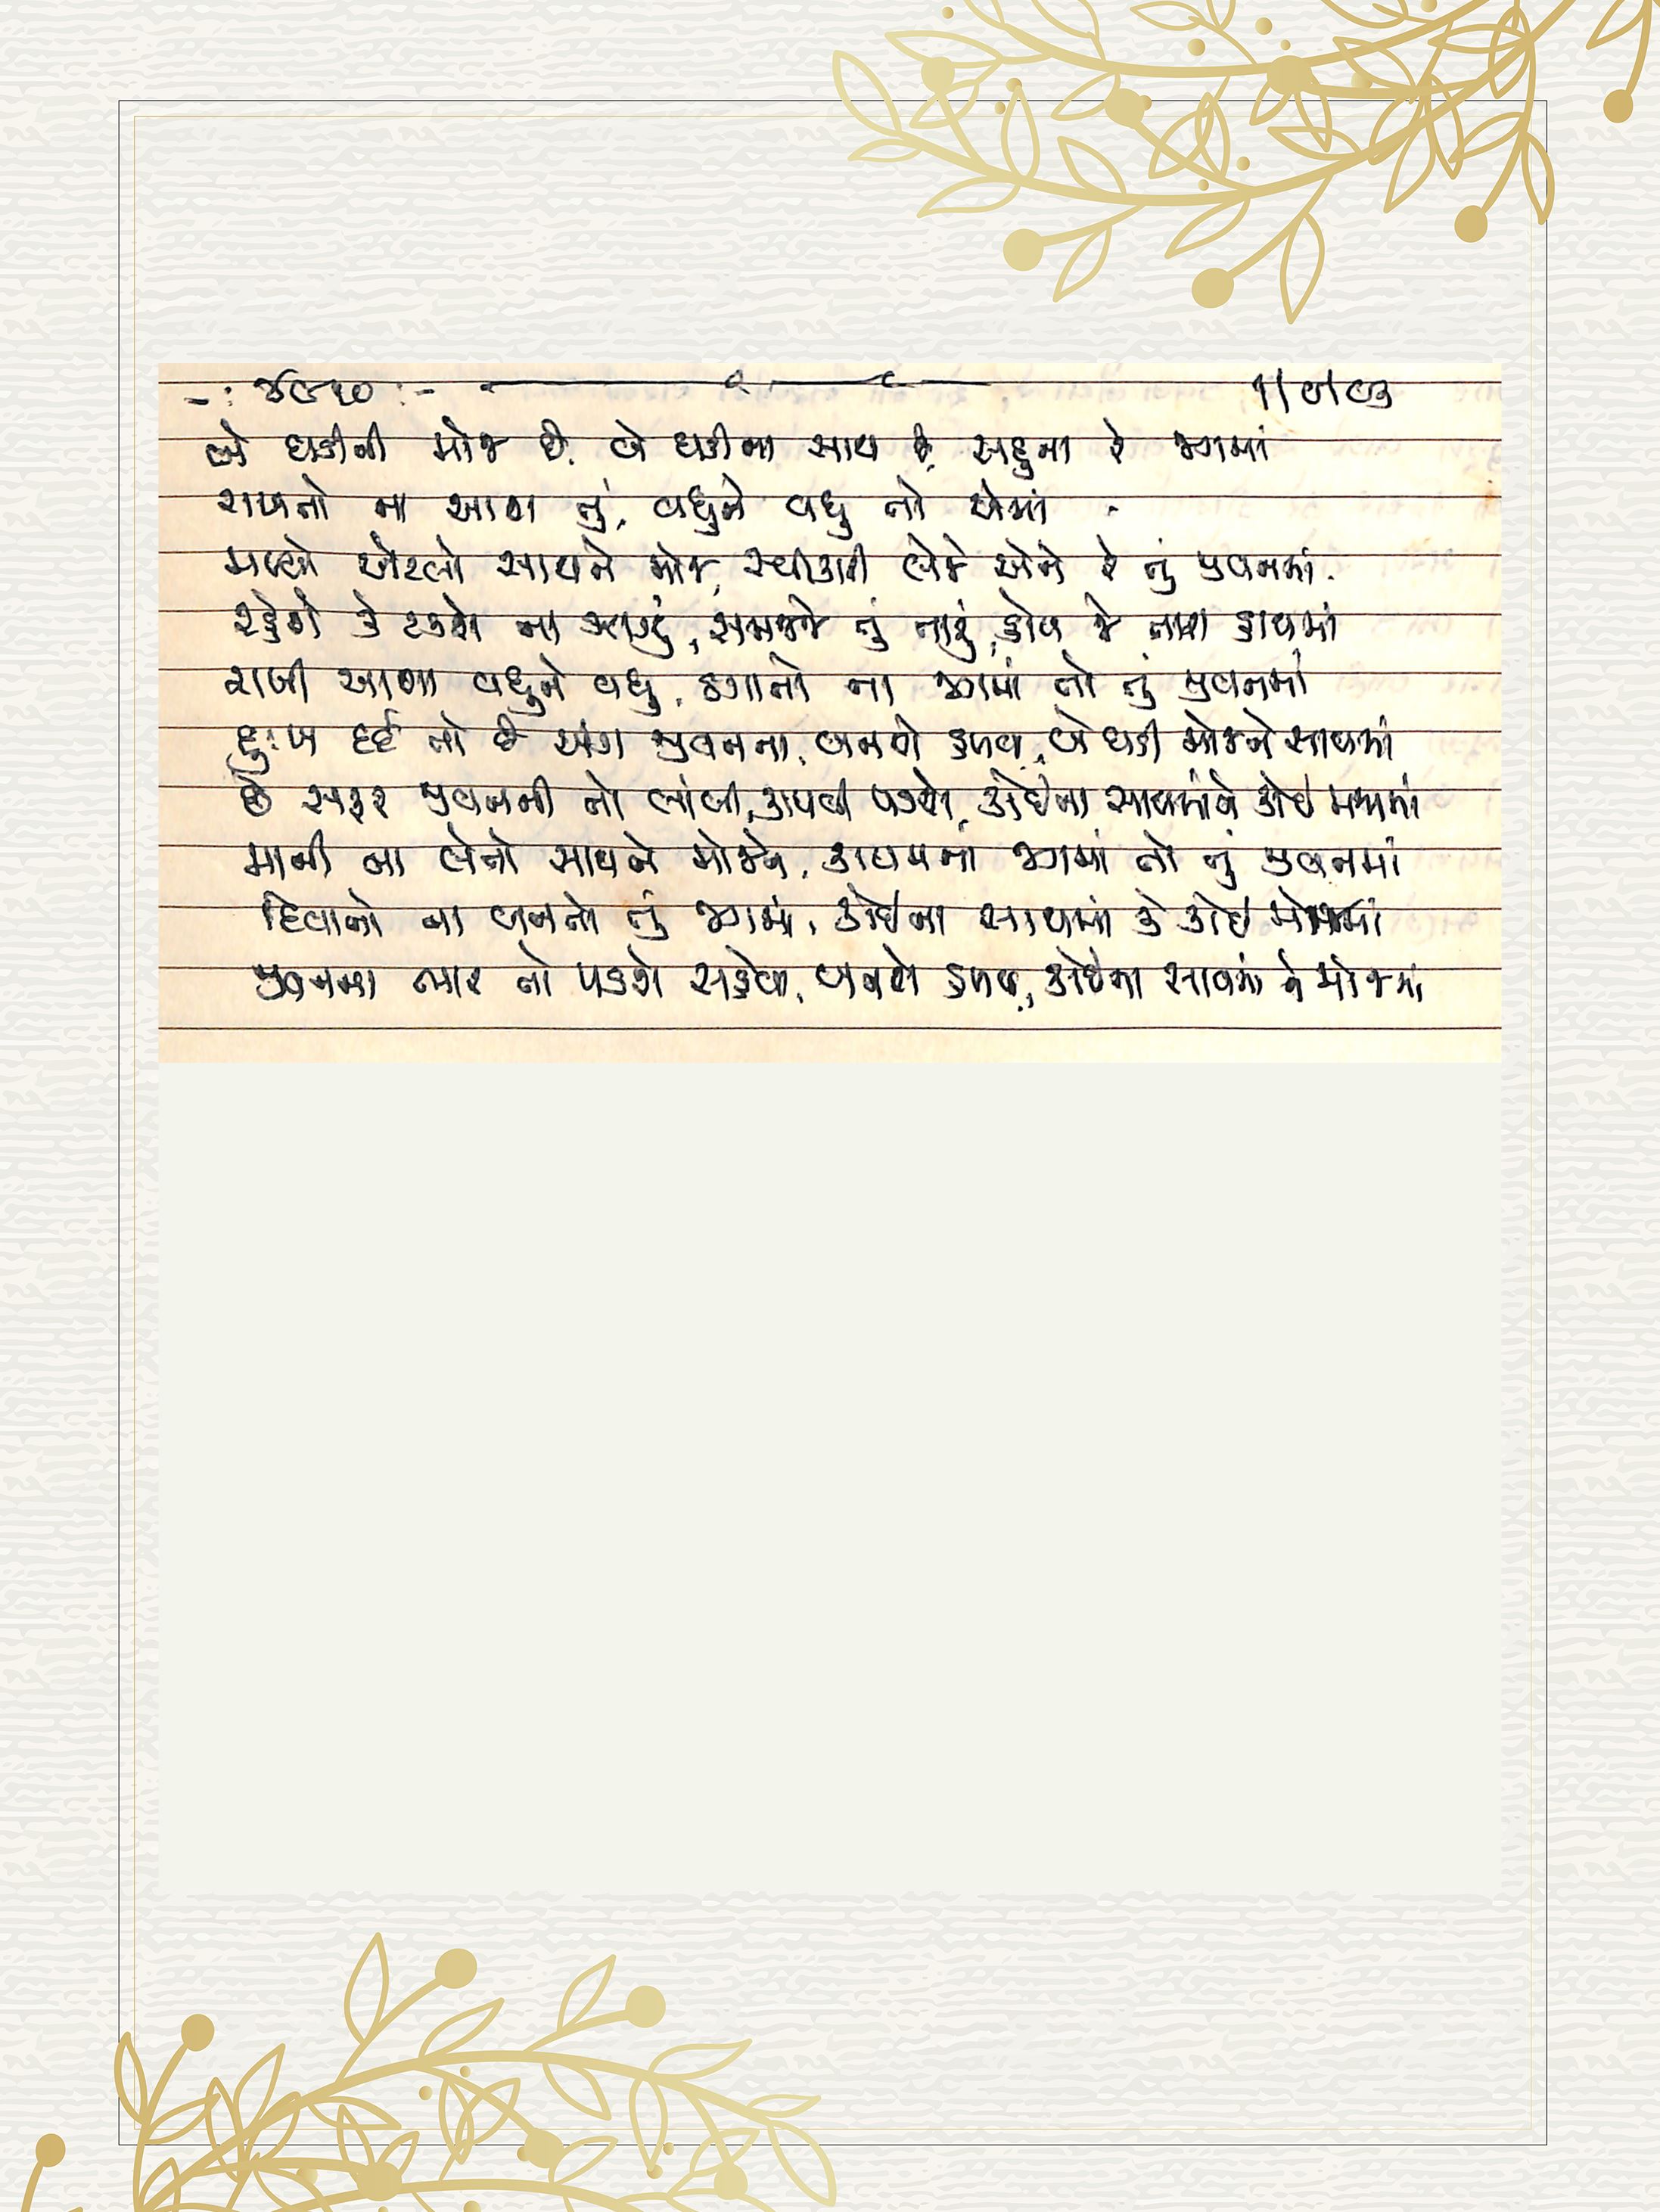 -: ૪૯૧૦ :- ૧/૭/૯૩
બે ઘડીની મોજ છે, બે ઘડીના સાથ છે, સહુના રે જગમાં
રાખતો ના આશા તું, વધુને વધુ તો એમાં
મળ્યો એટલો સાથને મોજ, સ્વીકારી લેજે એને રે તું જીવનમાં.
રહેશે કે ટકશે ના ઝાઝું, સમજજે તું તારું, હોય જે તારા હાથમાં
રાખી આશા વધુને વધુ, ઠગાતો ના જગમાં તો તું જીવનમાં
દુઃખ દર્દ તો છે અંગ જીવનના, બનશે હળવા, બે ઘડી મોજને સાથમાં
છે સફર જીવનની તો લાંબી, કાપવી પડશે, કોઈના સાથમાંને કોઈ મજામાં
માની ના લેતો સાથને મોજને, કાયમના જગમાં તો તું જીવનમાં
દિવાનો ના બનતો તું જગમાં, કોઈના સાથમાં કે કોઈ મોજમાં
જીવનમાં ભાર તો પડશે સહેવા, બનશે હળવા, કોઈના સાથમાં ને મોજમાં